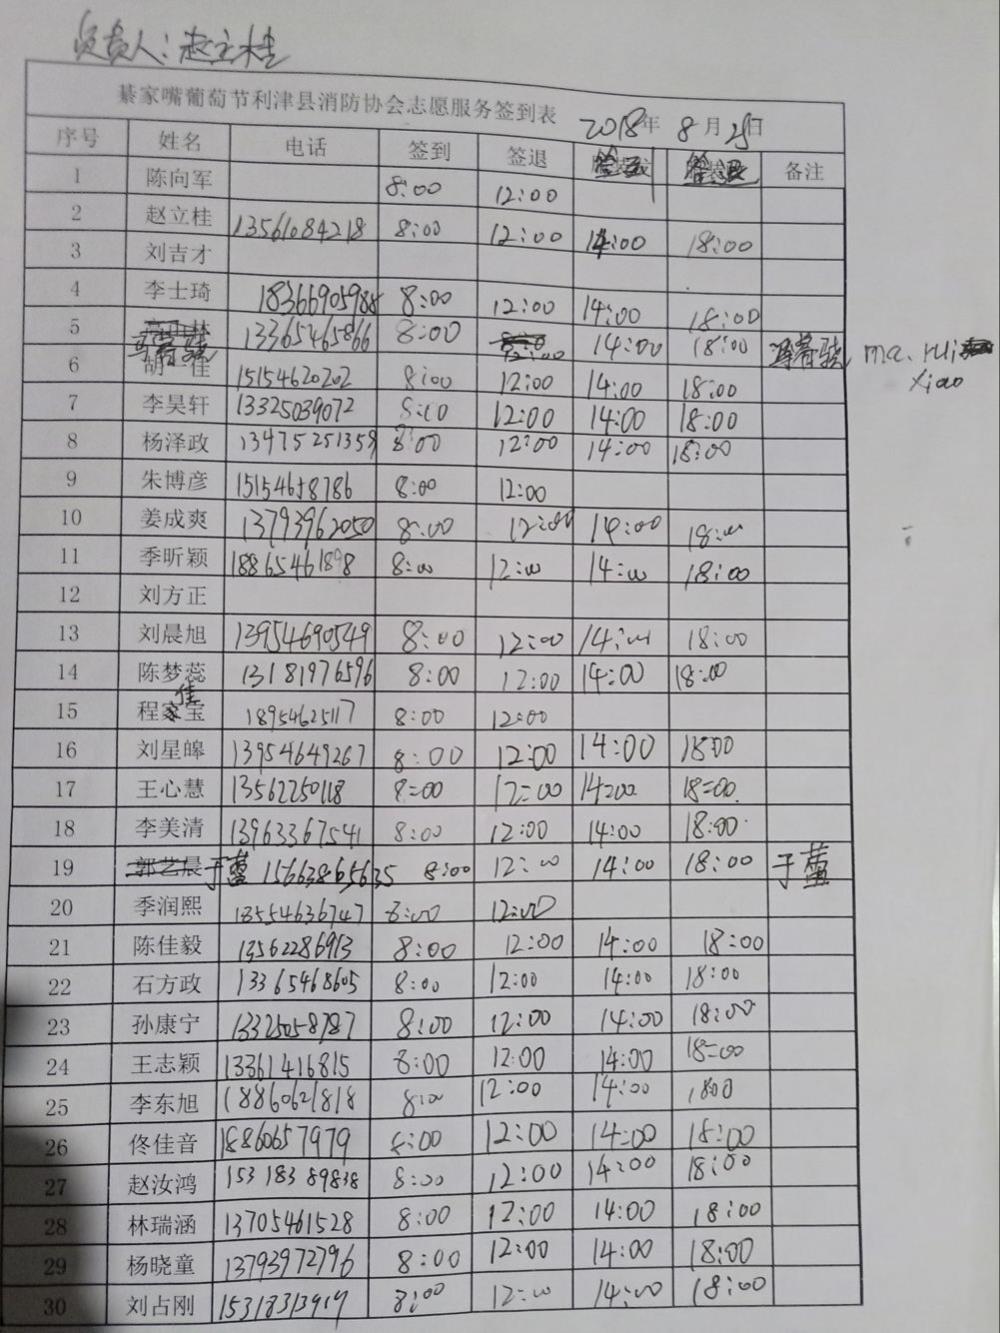 负责人:赵立桂
綦家嘴葡萄节利津县消防协会志愿服务签到表 2018年 8月25日
序号 姓名 电话 签到 签退 签到 签退 备注
1 陈向军 8:00 12:00
2 赵立桂 13561084218 8:00 12:00 14:00 18:00
3 刘吉才
4 李士琦 18366905988 8:00 12:00 14:00 18:00
5 冯睿骁 13365465866 8:00 12:00 14:00 18:00 冯睿骁 ma. rui
xiao
6 胡一佳 15154620202 8:00 12:00 14:00 18:00
7 李昊轩 13325039072 8:00 12:00 14:00 18:00
8 杨泽政 13475251359 8:00 12:00 14:00 18:00
9 朱博彦 15154658786 8:00 12:00
10 姜成爽 13793962050 8:00 12:00 14:00 18:00
11 季昕颖 18865461898 8:00 12:00 14:00 18:00
12 刘方正
13 刘晨旭 13954690549 8:00 12:00 14:00 18:00
14 陈梦蕊 13181976596 8:00 12:00 14:00 18:00
15 程佳宝 18954625117 8:00 12:00
16 刘星皞 13954649267 8:00 12:00 14:00 18:00
17 王心慧 13562250118 8:00 12:00 14:00 18:00
18 李美清 13963367541 8:00 12:00 14:00 18:00
19 郭艺晨 于蕾 15663865635 8:00 12:00 14:00 18:00 于蕾
20 季润熙 18554636747 8:00 12:00
21 陈佳毅 13562286913 8:00 12:00 14:00 18:00
22 石方政 13365468605 8:00 12:00 14:00 18:00
23 孙康宁 13325058787 8:00 12:00 14:00 18:00
24 王志颖 13361416815 8:00 12:00 14:00 18:00
25 李东旭 18860621818 8:00 12:00 14:00 1800
26 佟佳音 18860657979 8:00 12:00 14:00 18:00
27 赵汝鸿 15318389838 8:00 12:00 14:00 18:00
28 林瑞涵 13705461528 8:00 12:00 14:00 18:00
29 杨晓童 13793972796 8:00 12:00 14:00 18:00
30 刘占刚 15318313919 8:00 12:00 14:00 18:00